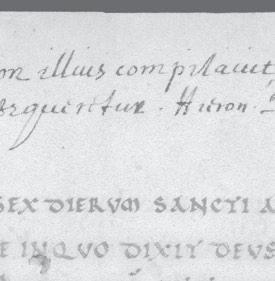 illius compilavit
sequentur. Hieron.
SEX DIERVM SANCTI A
E INQVO DIXIT DEUS